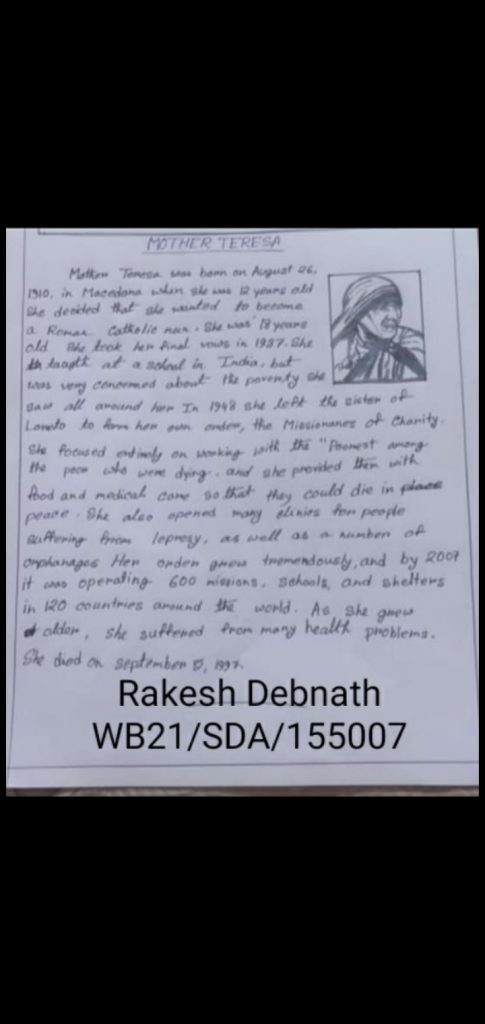 MOTHER TERESA
Mother Teresa was born on August 26,
1910, in Macedona when she was 12 years old
she decided that she wanted to become
a Roman Catholic nun. She was 18 years
old she took her final vows in 1937. She
taugth at a school in India, but
was very concerned about the poverty she
saw all around her In 1948 she left the sister of
Loreto to form her own order, the Missionaries of Charity.
She focused entirely on working with the "Poorest among
the poor who were dying. and she provided them with
food and medical care so that they could die in place
peace. She also opened many clinics for people
suffering from leprosy, as well as a number of
orphanages Her order grew tremendously, and by 2007
it was operating 600 missions, schools, and shelters
in 120 countries around the world. As she grew
older, she suffered from many health problems.
She died on september 5, 1997.
Rakesh Debnath
WB21/SDA/155007